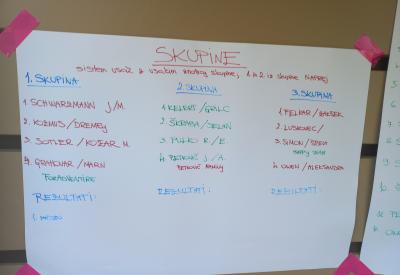 SKUPINE
sistem vsak z vsakim znotraj skupine, 1 & 2 iz skupine NAPREJ
1. SKUPINA
1. SCHWARZMANN J/M.
2. KOZMUS/DREMELJ
3. SOTLER / KOZAR M.
4. GRAHOVAR / MARN
FORADVENTURE
REZULTATI:
1. MESTO
2. SKUPINA
1. KELERI / GRILC
2. ŠKRABA / JELEN
3. PUŁKO R./E.
4. PETROVIČ J/A.
PETROVIČ FAMILY
REZULTATI:
3. SKUPINA
1. PELHAR /
2. LUSKOVEC /
3. SIMON /
HAPPY TEAM
4. OWEN / ALEKSANDRA
REZULTATI: